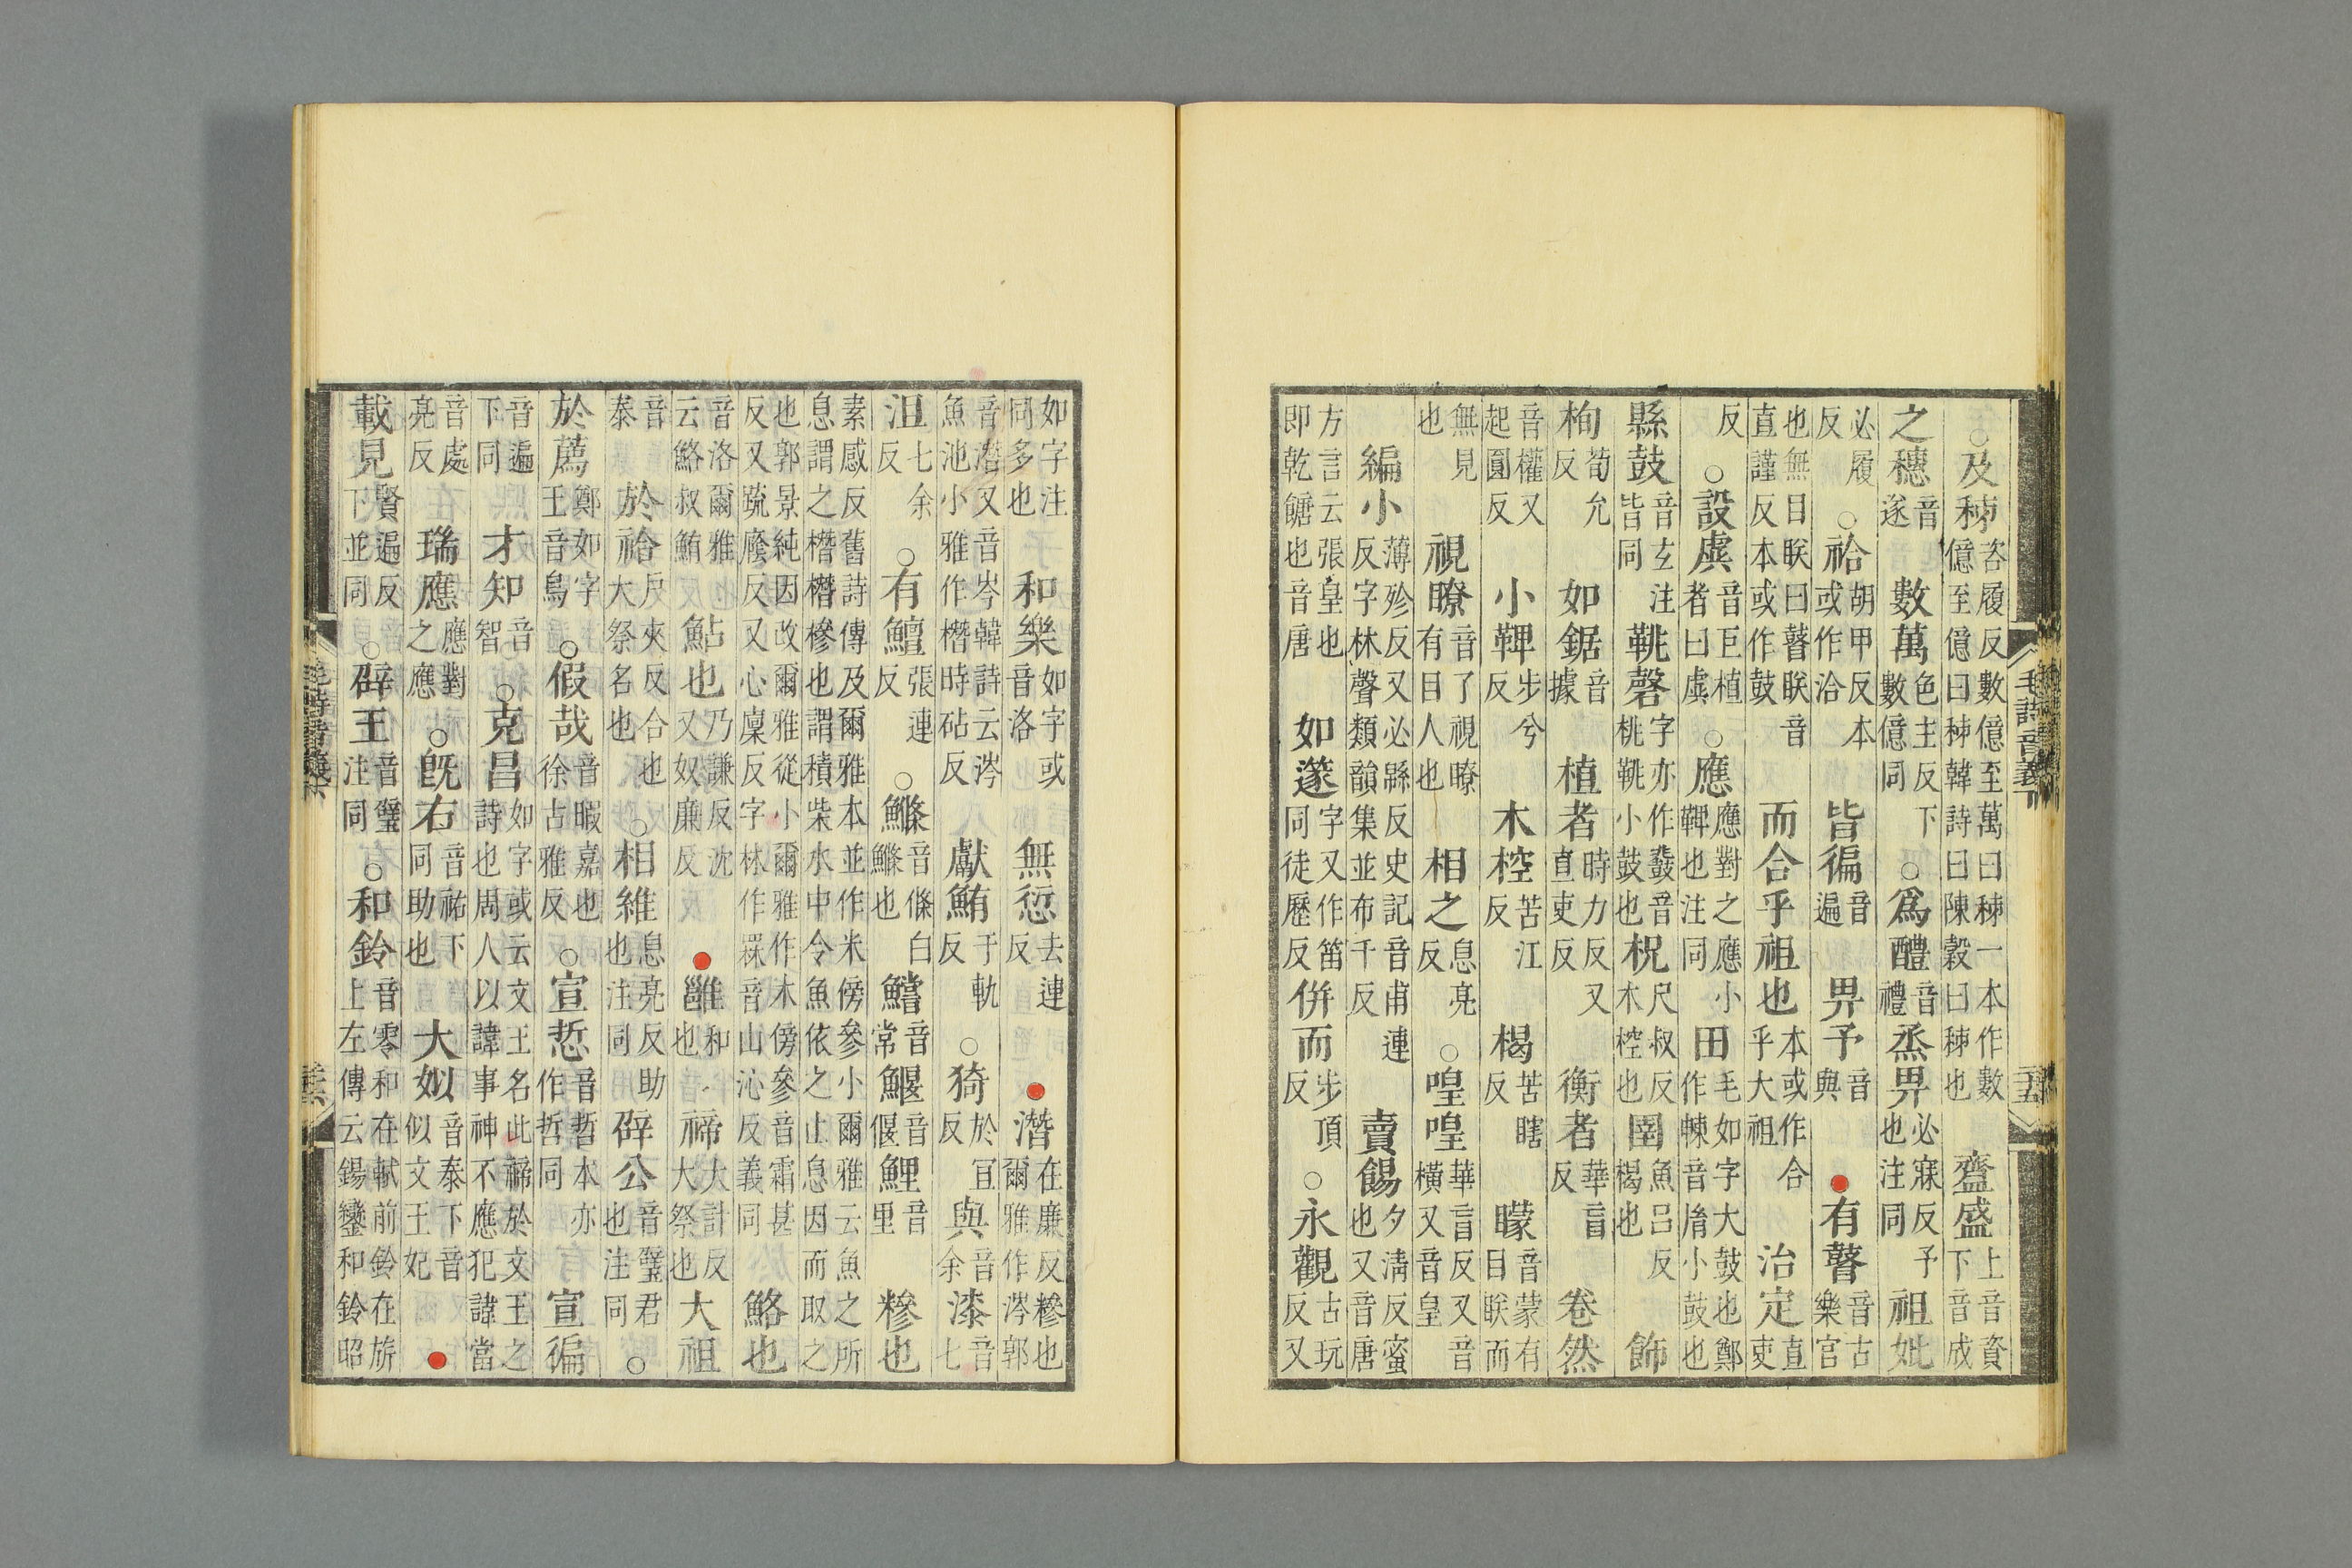 ○及秭咨履反數億至萬曰秭一本作數億至億曰秭韓詩曰陳穀曰秭也 齍盛上音資下音成
之穗音遂 數萬色主反下數億同 ○爲醴音禮 烝畀必寐反予也注同 祖妣
必履反 ○祫胡甲反本或作洽 皆徧音遍 畀予音與 ●有瞽音古樂官
也無日眹曰瞽眹音直謹反本或作鼓 而合乎祖也本或作合乎大祖 治定直吏
反 ○設虡音巨植者曰虡 ○應應對之應小鞞也注同 田毛如字大鼓也鄭作朄音胤小鼓也
縣鼓音玄注皆同 鞉磬字亦作鼗音桃鞉小鼓也 柷尺叔反木椌也 圉魚呂反楬也 飾
栒荀允反 如鋸音據 植者時力反又直吏反 衡者華盲反 卷然
音權又起圓反 小鞞步兮反 木椌苦江反 楬苦瞎反 矇音蒙有目眹而
無見也 視瞭音了視瞭有目人也 相之息亮反 ○喤喤華盲反又音橫又音皇
編小薄殄反又必緜反史記音甫連反字林聲類韻集並布千反 賣餳夕淸反蜜也又音唐
方言云張皇也即乾餹也音唐 如篴字又作笛同徒歷反 併而步頂反 ○永觀古玩反又
毛詩音義下 二十五
如字注同多也 和樂如字或音洛 無愆去連反 ●潛在廉反糝也爾雅作涔郭
音潛又音岑韓詩云涔魚池小雅作橬時砧反 獻鮪于軌反 ○猗於宜反 與音余 漆音七
沮七余反 ○有鱣張連反 ○鰷音條白鰷也 鱨音常 鰋音偃 鯉音里 糝也
素感反舊詩傳及爾雅本並作米傍參小爾雅云魚之所息謂之橬橬槮也謂積柴水中令魚依之止息因而取之
也郭景純因改爾雅從小爾雅作木傍參音霜甚反又疏廕反又心廩反字林作罧音山沁反義同 鮥也
音洛爾雅云鮥叔鮪 鮎也乃謙反沈又奴廉反 ●雝和也 禘大計反大祭也 大祖
音泰 於祫戶夾反合也大祭名也 ○相維息亮反助也注同 辟公音璧君也注同 ○
於薦鄭如字王音烏 ○假哉音暇嘉也徐古雅反 ○宣悊音哲本亦作哲同 宣徧
音遍下同 才知音智 ○克昌如字或云文王名此禘於文王之詩也周人以諱事神不應犯諱當
音處亮反 瑞應應對之應 ○旣右音祐下同助也 大姒音泰下音似文王妃 ●
載見賢遍反下並同 ○辟王音璧注同 ○和鈴音零和在軾前鈴在旂上左傳云鍚鑾和鈴昭